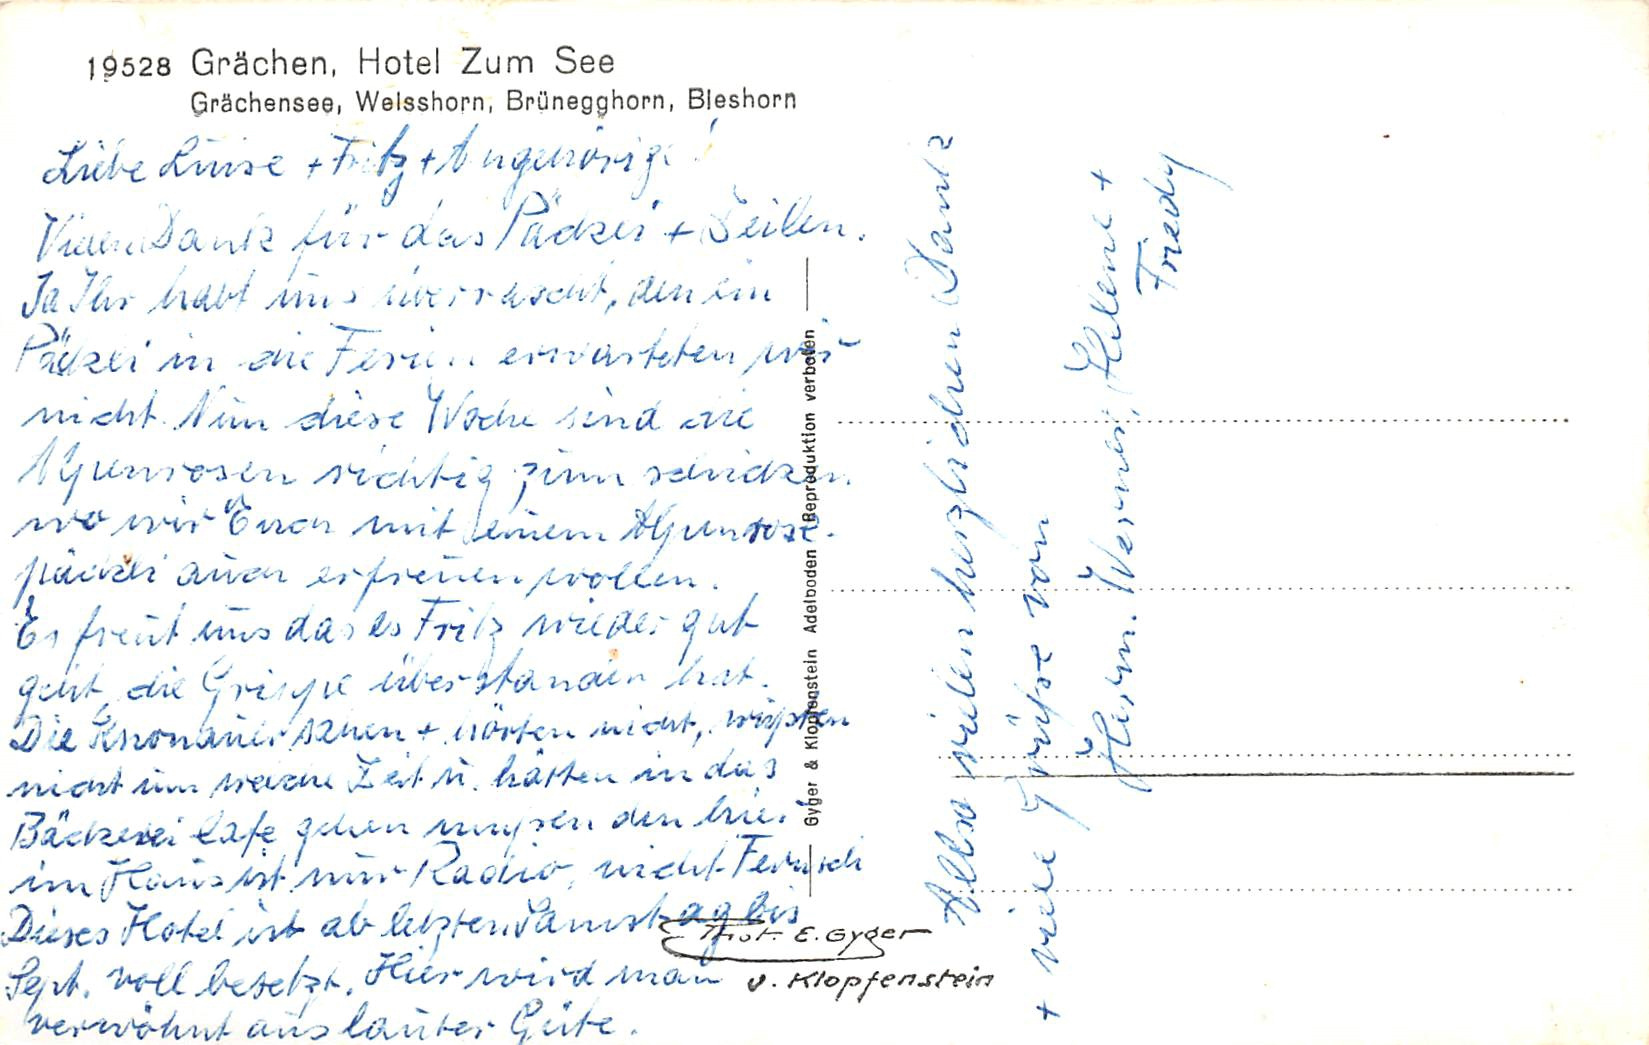 19528 Grächen, Hotel Zum See
Grächensee, Weisshorn, Brünegghorn, Bieshorn
Liebe Luise + Fritz + Angehörige!
Vielen Dank für das Päckli + Zeilen.
Ja Ihr habt uns überrascht, den ein
Päckli in die Ferien erwarteten wir
nicht. Nun diese Woche sind die
Alpenrosen richtig zum schicken.
wo wir Euch mit einem Alpenrose-
päckli auch erfreuen wollen.
Es freut uns das es Fritz wieder gut
geht, die Grippe überstanden hat.
Die Knonauer sehen + hörten nicht, wußten
nicht um welche Zeit u. hätten in das
Bäckerei Cafe gehen mußen den hier
im Haus ist nur Radio, nicht Fernseh
Dieses Hotel ist ab letzten Samstag bis
Sept. voll besetzt. Hier wird man
verwöhnt aus lauter Güte.
Gyger & Klopfenstein Adelboden Reproduktion verboten
Phot. E. Gyger
v. Klopfenstein
Allso vielen herzlichen Dank
+ viele Grüße von
Herm. Werner, Helene +
Friedy